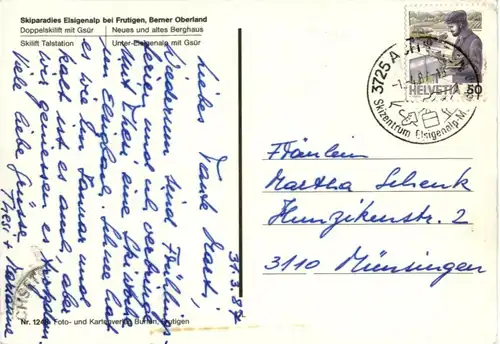 Skiparadies Elsigenalp bei Frutigen, Berner Oberland
Doppelskilift mit Gsür
Neues und altes Berghaus
Skilift Talstation
Unter-Elsigenalp mit Gsür
31.3.87
Liebes Tante Marti,
Wiederum sind Frühlings-
ferien und ich verbringe
mit Thesi eine Skiwoche
im Elsigbach. Schnee hat
es wie im Januar und
kalt ist es auch, aber
wir geniessen es trotzdem.
Viele liebe Grüsse
Thesi + Marianne
Nr. 124 Foto- und Kartenverlag Frutigen
3725 ACH
HELVETIA 50
Skizentrum Elsigenalp-M
Fräulein
Martha Schenk
Hunzikenstr. 2
3110 Münsingen